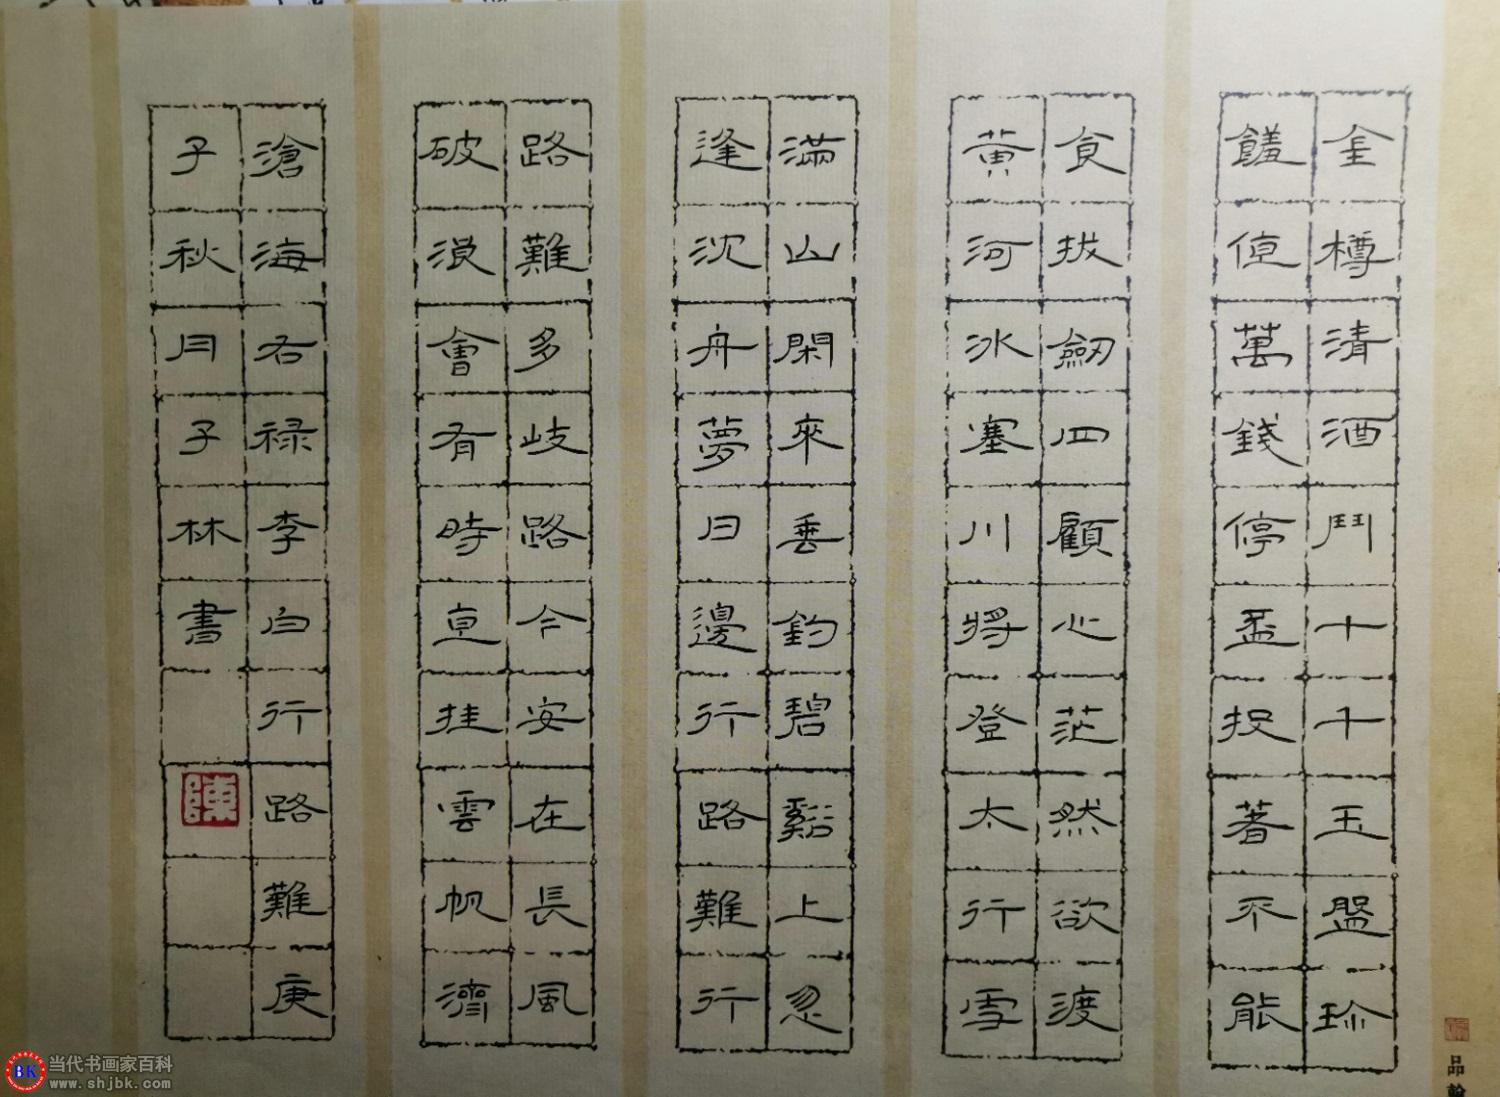 金樽清酒鬥十千玉盤珍
饈值萬錢停盃投著不能
食拔劔四顧心茫然欲渡
黃河冰塞川將登太行雪
滿山閑來垂釣碧谿上忽
逢沈舟夢日邊行路難行
路難多岐路今安在長風
破浪會有時直挂雲帆濟
滄海右禄李白行路難庚
子秋月子林書
陳
品翰
BK
当代书画家百科
www.shjbk.com